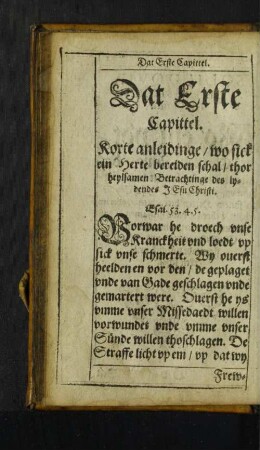 Dat Erste Capittel.
Dat Erste
Capittel.
Korte anleidinge / wo sick
ein Herte bereiden schal / thor
heylsamen Betrachtinge des ly-
dendes JEsu Christi.
Esai. 53. 4. 5.
Vorwar he droech vnse
Kranckheit vnd loedt / vp
sick vnse schmerte. Wy ouerst
heelden en vor den / de geplaget
vnde van Gade geschlagen vnde
gemartert were. Ouerst he ys
vmme vnser Missedaedt willen
vorwundet vnde vmme vnser
Sünde willen thoschlagen. De
Straffe licht vp em / vp dat wy
Frew-